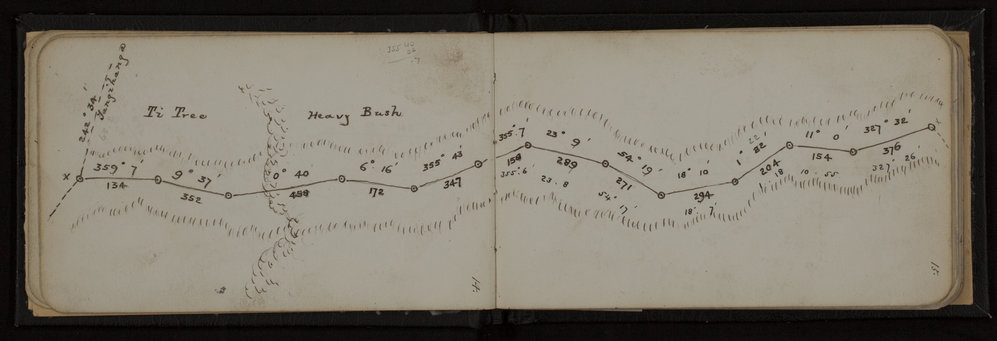 355 40
06
.7
242° 34'
Tangihanga
Ti Tree
Heavy Bush
359° 7'
134
9° 37'
352
0° 40
459
6° 16'
172
355° 43'
347
14.
355° 7'
150
355.6
23° 9'
289
23.8
54° 19'
271
54° 17'
18° 10
294
18° 7'
22'
1° 22
204
18
11° 0'
154
10.55
327° 32'
376
327° 26'
15.